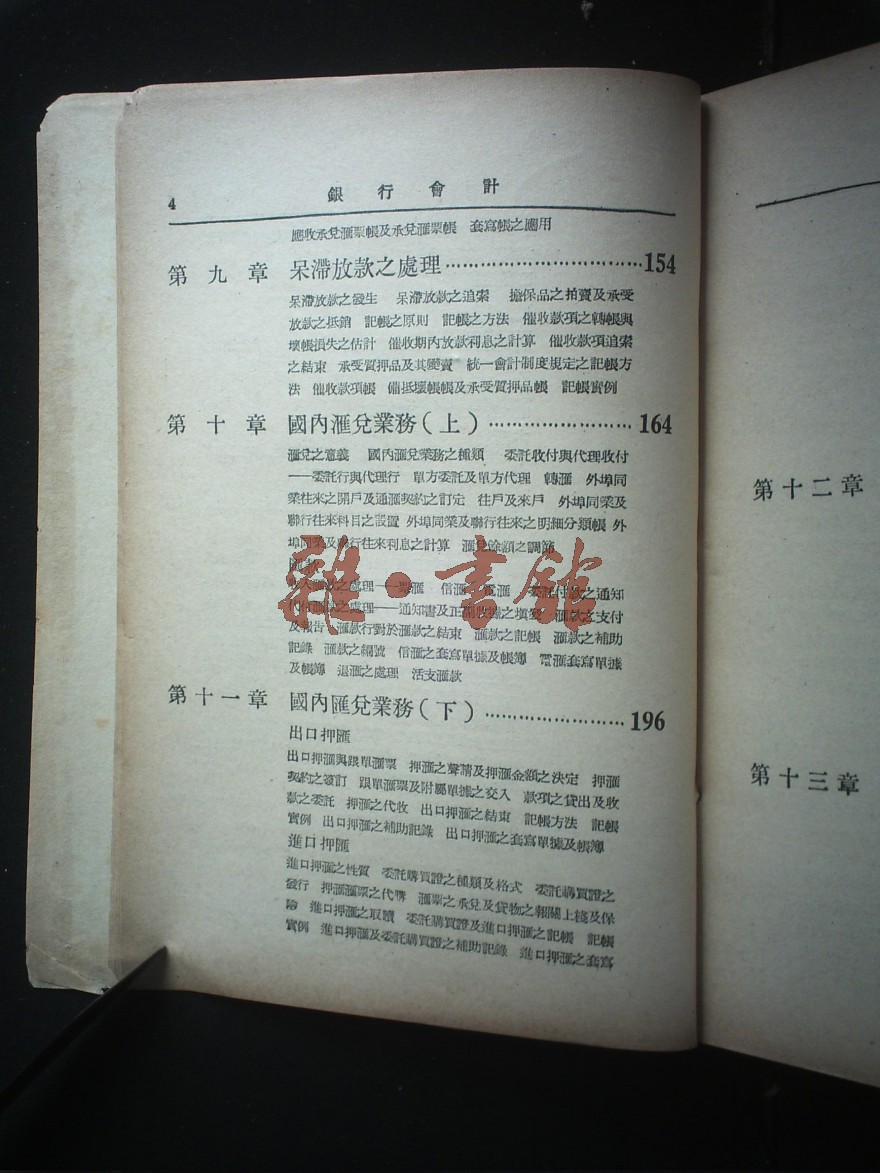 4
銀行會計
應收承兌滙票帳及承兌滙票帳 套寫帳之應用
第九章 呆滯放款之處理……………………………154
呆滯放款之發生 呆滯放款之追索 擔保品之拍賣及承受
放款之抵銷 記帳之原則 記帳之方法 催收款項之轉帳與
壞帳損失之估計 催收期內放款利息之計算 催收款項追索
之結束 承受質押品及其變賣 統一會計制度規定之記帳方
法 催收款項帳 備抵壞帳帳及承受質押品帳 記帳實例
第十章 國內滙兌業務(上)……………………164
滙兌之意義 國內滙兌業務之種類 委託收付與代理收付
——委託行與代理行 單方委託及單方代理 轉滙 外埠同
業往來之開戶及通滙契約之訂定 往戶及來戶 外埠同業及
聯行往來科目之設置 外埠同業及聯行往來之明細分類帳 外
埠同業及聯行往來利息之計算 滙兌餘額之調節
滙款之處理——票滙 信滙 電滙 委託付款之通知
之處理——通知書及正副收據之填發 滙款之支付
及報告 滙款行對於滙款之結束 滙款之記帳 滙款之補助
記錄 滙款之編號 信滙之套寫單據及帳簿 電滙套寫單據
及帳簿 退滙之處理 活支滙款
第十一章 國內匯兌業務(下)……………………196
出口押匯
出口押滙與跟單滙票 押滙之聲請及押滙金額之決定 押滙
契約之簽訂 跟單滙票及附屬單據之交入 款項之貸出及收
款之委託 押滙之代收 出口押滙之結束 記帳方法 記帳
實例 出口押滙之補助記錄 出口押滙之套寫單據及帳簿
進口押匯
進口押滙之性質 委託購買證之種類及格式 委託購買證之
發行 押滙滙票之代購 滙票之承兌及貨物之報關上棧及保
險 進口押滙之取贖 委託購買證及進口押滙之記帳 記帳
實例 進口押滙及委託購買證之補助記錄 進口押滙之套寫
第十二章
第十三章
雜·書館